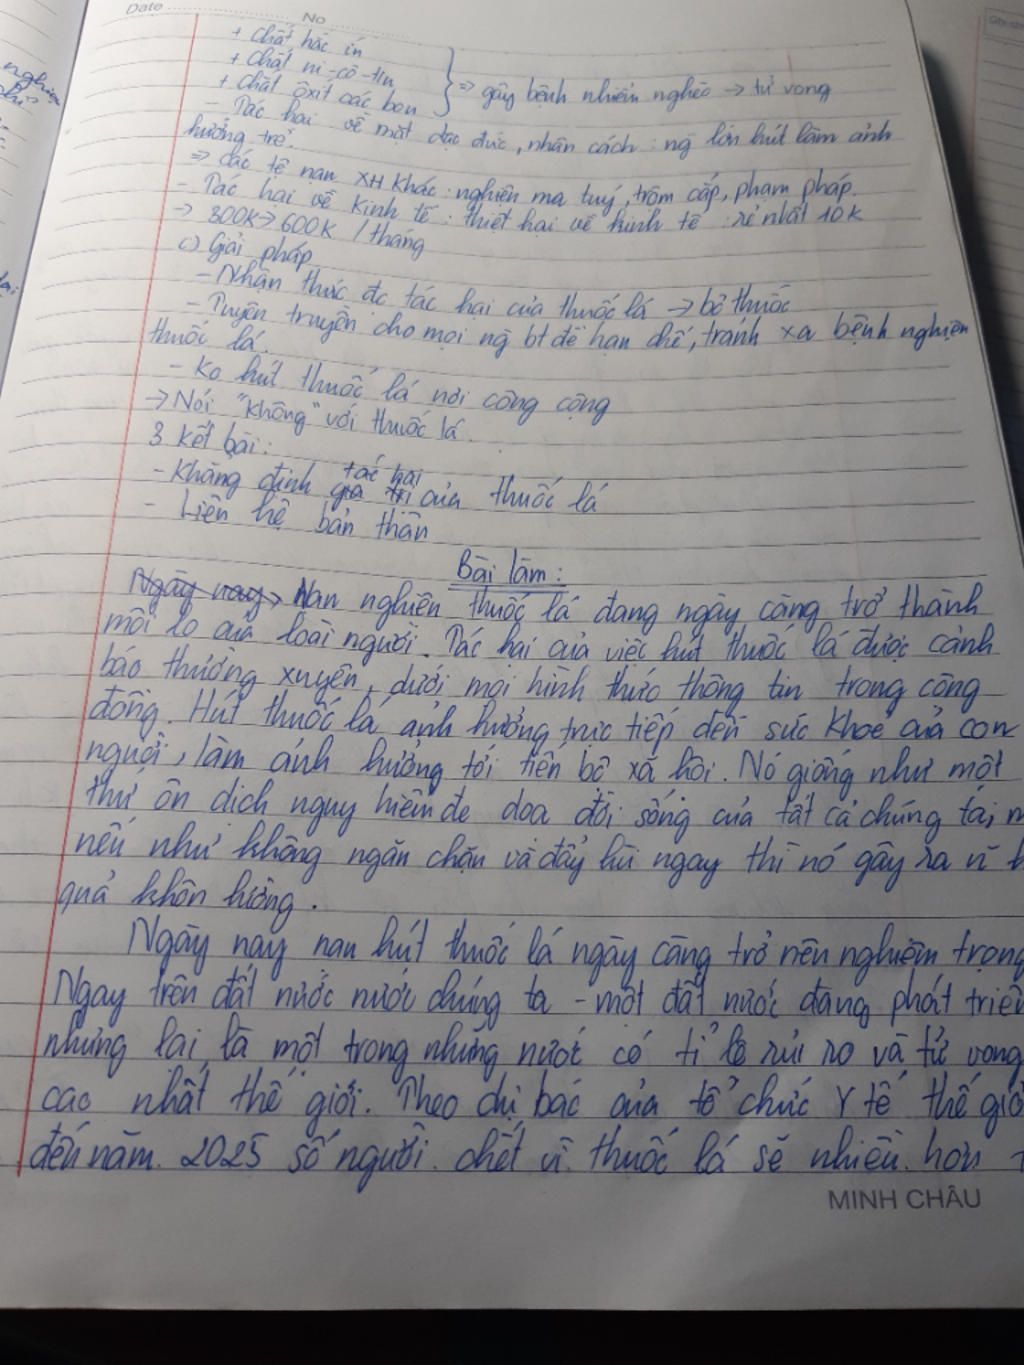 Date No
+ Chất hắc ín
+ Chất ni-cô-tin
+ Chất ôxit các bon } => gây bệnh nhiễm nghèo → tử vong
- Tác hại về mặt đạo đức, nhân cách: ng lớn hút làm ảnh
hưởng trẻ.
=> các tệ nạn XH khác: nghiện ma tuý, trộm cắp, phạm pháp.
- Tác hại về kinh tế: thiệt hại về kinh tế: rẻ nhất 10k
→ 300k → 600k / tháng
c) Giải pháp
- Nhận thức đc tác hại của thuốc lá → bỏ thuốc
- Tuyên truyền cho mọi ng bt để hạn chế, tránh xa bệnh nghiện
thuốc lá.
- Ko hút thuốc lá nơi công cộng
→ Nói "không" với thuốc lá.
3 Kết bài:
- Khẳng định giá trị tác hại của thuốc lá
- Liên hệ bản thân
Bài làm:
Ngày nay, Nạn nghiện thuốc lá đang ngày càng trở thành
mối lo của loài người. Tác hại của việc hút thuốc lá được cảnh
báo thường xuyên, dưới mọi hình thức thông tin trong cộng
đồng. Hút thuốc lá ảnh hưởng trực tiếp đến sức khoẻ của con
người, làm ảnh hưởng tới tiến bộ xã hội. Nó giống như một
thứ ôn dịch nguy hiểm đe doạ đời sống của tất cả chúng ta,
nếu như không ngăn chặn và đẩy lùi ngay thì nó gây ra
quả khôn lường.
Ngày nay nạn hút thuốc lá ngày càng trở nên nghiêm trọng
Ngay trên đất nước nước chúng ta - một đất nước đang phát triển
nhưng lại là một trong những nước có tỉ lệ rủi ro và tử vong
cao nhất thế giới. Theo dự báo của tổ chức Y tế thế giới
đến năm 2025 số người chết vì thuốc lá sẽ nhiều hơn
MINH CHÂU